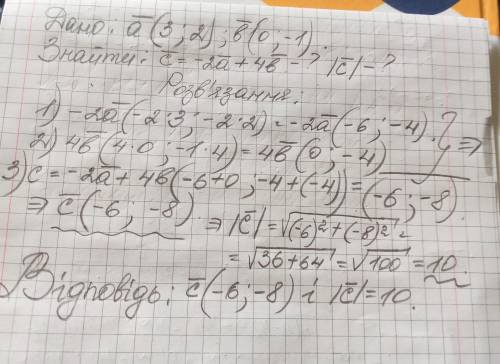 Дано: a̅ (3 ; 2) ; b̅ (0 ; -1).
Знайти: c̅ = -2a̅ + 4b̅ - ? |c̅| - ?
Розв'язання:
1) -2a̅ (-2·3 ; -2·2) = -2a̅ (-6 ; -4). } ⇒
2) 4b̅ (4·0 ; -1·4) = 4b̅ (0 ; -4)
3) c̅ = -2a̅ + 4b̅ (-6+0 ; -4+(-4)) = (-6 ; -8).
⇒ c̅ (-6 ; -8) ⇒ |c̅| = √(-6)² + (-8)² =
= √36+64 = √100 = 10.
Відповідь: c̅ (-6 ; -8) і |c̅| = 10.